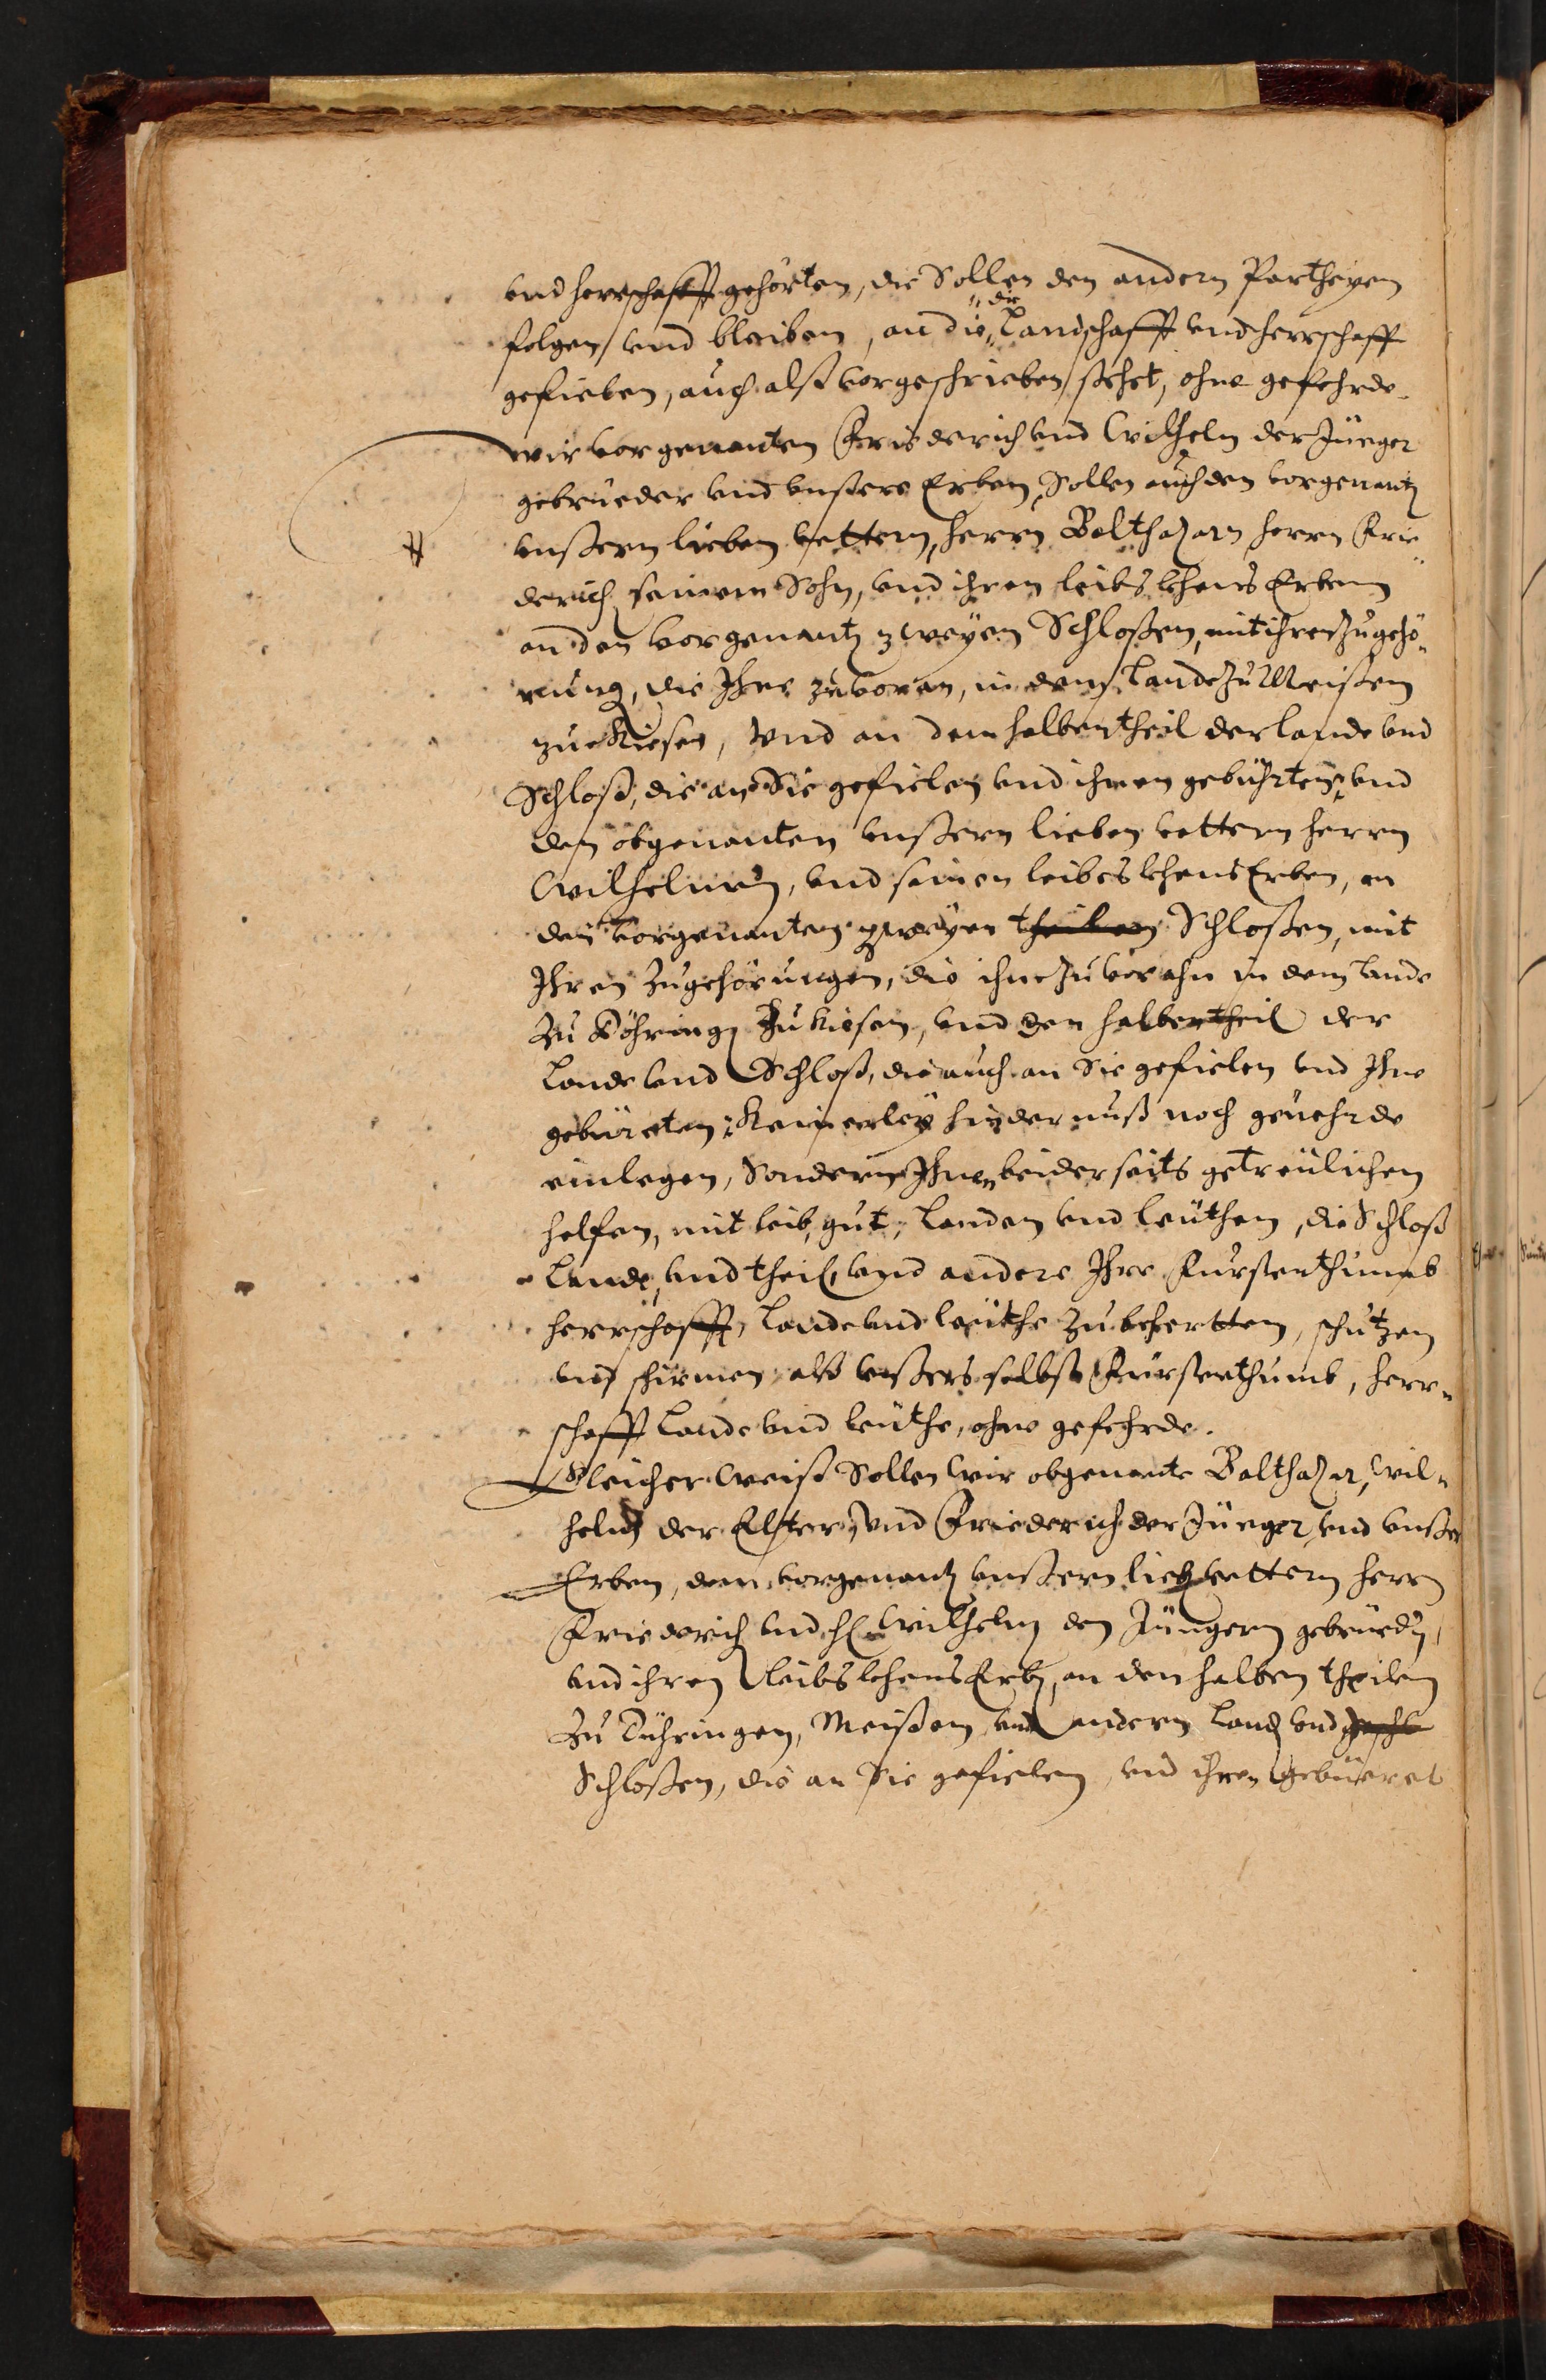 vnd herrschafft gehörten, die Sollen den andern Partheyen
die
folgen vnd bleiben, an die Landschafft vnd herrschafft
gefielen, auch alß vorgeschrieben stehet, ohne gefehrde.
wir vorgenanten Friederich vnd Wilhelm der Jünger
gebrüeder vnd vnßere Erben, Sollen auch den vorgenantn
vnßern lieben vettern, herrn Balthasarn herrn Frie-
derich seinem Sohn, vnd ihren leibs lehens Erben
an den vorgenantn zweyen Schloßen, mit ihren zugehö-
rung, die Ihne zuvoran, in dem Lande zu Meißen
zue Kiesen, vnd an dem halben theil der lande vnd
Schloß, die an Sie gefielen vnd ihnen gebührten, vnd
den obgenanten vnßern lieben vettern herrn
Wilhelmen, vnd seinen leibes lehens Erben, an
den vorgenanten zweyen theilen Schloßen, mit
Ihren Zugehörungen, die ihne zuvorahn in dem Lande
Zu Döhringen Zu kiesen, vnd den halben theil der
Lande vnd Schloß, die auch an Sie gefielen vnd Ihne
gebürten, Keinerley hindernuß noch geuehrde
einlegen, Sondern Ihnen beiderseits getreülichen
helfen, mit leib, gut, Landen vnd leüthen, die Schloß
Lande, vnd theil, vnd andere Ihre Fürstenthumb
herrschafft, Lande vnd leüthe Zu beschertten, schützen
vnd schirmen, alß vnßers selbst Fürstenthumb, herr-
schafft Lande vnd leüthe, ohne gefehrde.
Gleicher Weiß Sollen Wir obgenante Balthasar, Wil-
helm der Elter, vnd Friederich der Jünger, vnd vnßer
Erben, den vorgenantn vnßern liebn vettern herrn
Friederich vnd H. Wilhelm den Jüngern gebrüedern,
vnd ihren Leibs lehens Erbn, an den halben theilen
Zu Dühringen, Meißen, vnd andern Land vnd
Schloßen, die an Sie gefielen, vnd ihnen gebüeret